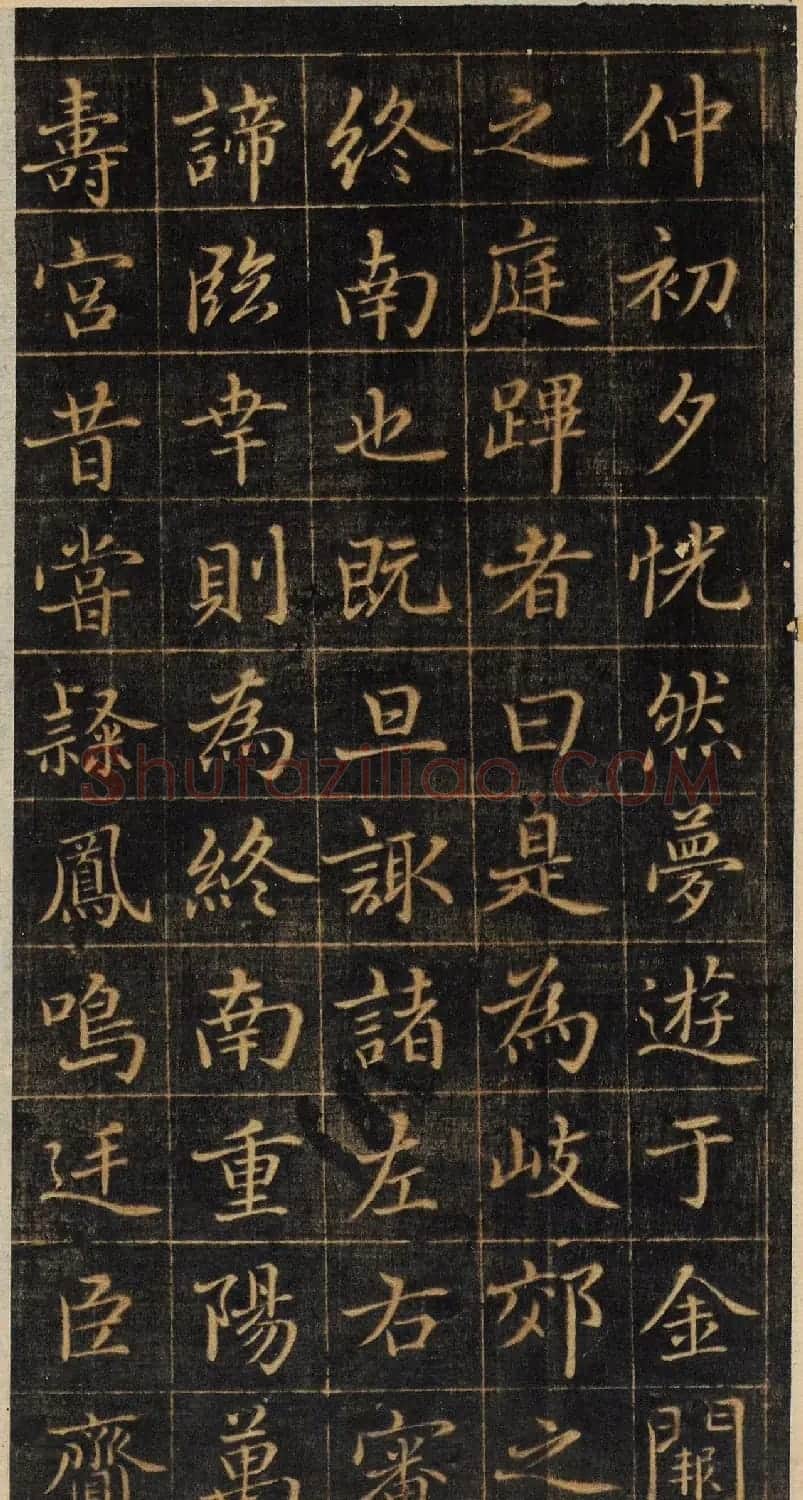 仲初夕恍然夢遊于金闕
之庭蹕者曰是為岐郊之
終南也既旦諏諸左右審
諦臨幸則為終南重陽萬
壽宮昔嘗隸鳳鳴廷臣齎
Shufaziliao.COM